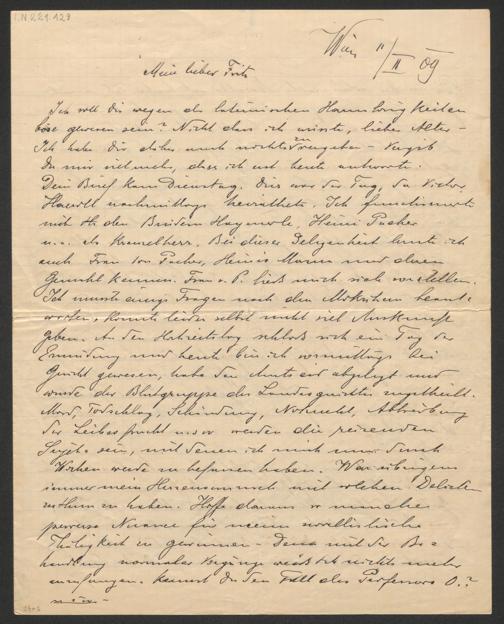 I.N. 221.123
Wien 11/II 09
Mein lieber Fritz
Ich soll Dir wegen der lateinischen
böse gewesen sein? Nicht dass ich wüsste, lieber Alter –
Ich habe Dir daher auch nichts zu vergeben – Vergib
Du mir vielmehr, dass ich erst heute antworte.
Dein Brief kam Dienstag. Dies war der Tag, da Victor
nachmittags heiratete. Ich functionierte
mit den Brüdern Haymerle, Heini Pacher
u.s. als Kranzelherr. Bei dieser Gelegenheit lernte ich
auch Frau von Pacher, Heinis Mama und deren
Gemahl kennen. Frau v. P. ließ mich sich vorstellen.
Ich musste einige Fragen nach den beant-
worten, konnte leider selbst nicht viel Auskunft
geben. An den Hochzeitstag schloß sich ein Tag der
Ermüdung und heute bin ich vormittags bei
Gericht gewesen, habe den Amtseid abgelegt und
wurde der Blutgruppe des Landesgerichtes zugetheilt.
Mord, Todschlag, Schändung, Nothzucht, Abtreibung
der Leibesfrucht u.s.w. werden die reizenden
Sujets sein, mit denen ich mich nun durch
Wochen werde zu befassen haben. War übrigens
immer mein Herzenswunsch mit solchen Delicten
zu thun zu haben. Hoffe daraus so manche
perverse Nuance für meine novellistische
Thätigkeit zu gewinnen – Denn mit der Be-
handlung normaler Vorgänge weiß ich nichts mehr
anzufangen. Kennst Du den Fall des Professors O.?